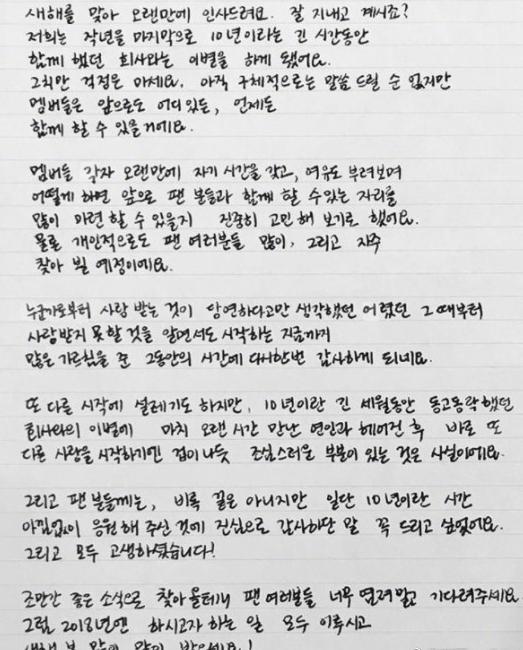 새해를 맞아 오랜만에 인사드려요. 잘 지내고 계시죠?
저희는 작년을 마지막으로 10년이라는 긴 시간동안
함께 했던 회사와는 이별을 하게 됐어요.
그치만 걱정은 마세요. 아직 구체적으로는 말씀 드릴 순 없지만
멤버들은 앞으로도 어디 있든, 언제든
함께 할 수 있을거에요.
멤버들 각자 오랜만에 자기 시간을 갖고, 여유도 부려보며
어떻게 하면 앞으로 팬 분들과 함께 할 수 있는 자리를
많이 마련 할 수 있을지 진중히 고민 해 보기로 했어요.
물론 개인적으로도 팬 여러분들 많이, 그리고 자주
찾아 뵐 예정이에요.
누군가로부터 사랑 받는 것이 당연하다고만 생각했던 어렸던 그 때부터
사랑받지 못할 것을 알면서도 시작하는 지금까지
많은 가르침을 준 그동안의 시간에 다시한번 감사하게 되네요.
또 다른 시작에 설레기도 하지만, 10년이란 긴 세월동안 동고동락 했던
회사와의 이별에 마치 오랜 시간 만난 연인과 헤어진 후 바로 또
다른 사랑을 시작하기엔 겁이 나듯 조심스러운 부분이 있는 것은 사실이에요.
그리고 팬 분들께는, 비록 끝은 아니지만 일단 10년이란 시간
아낌없이 응원 해 주신 것에 진심으로 감사하단 말 꼭 드리고 싶었어요.
그리고 모두 고생하셨습니다!
조만간 좋은 소식으로 찾아올테니 팬 여러분들 너무 염려말고 기다려주세요
그럼 2018년엔 하시고자 하는 일 모두 이루시고
새해 복 많이 많이 받으세요!